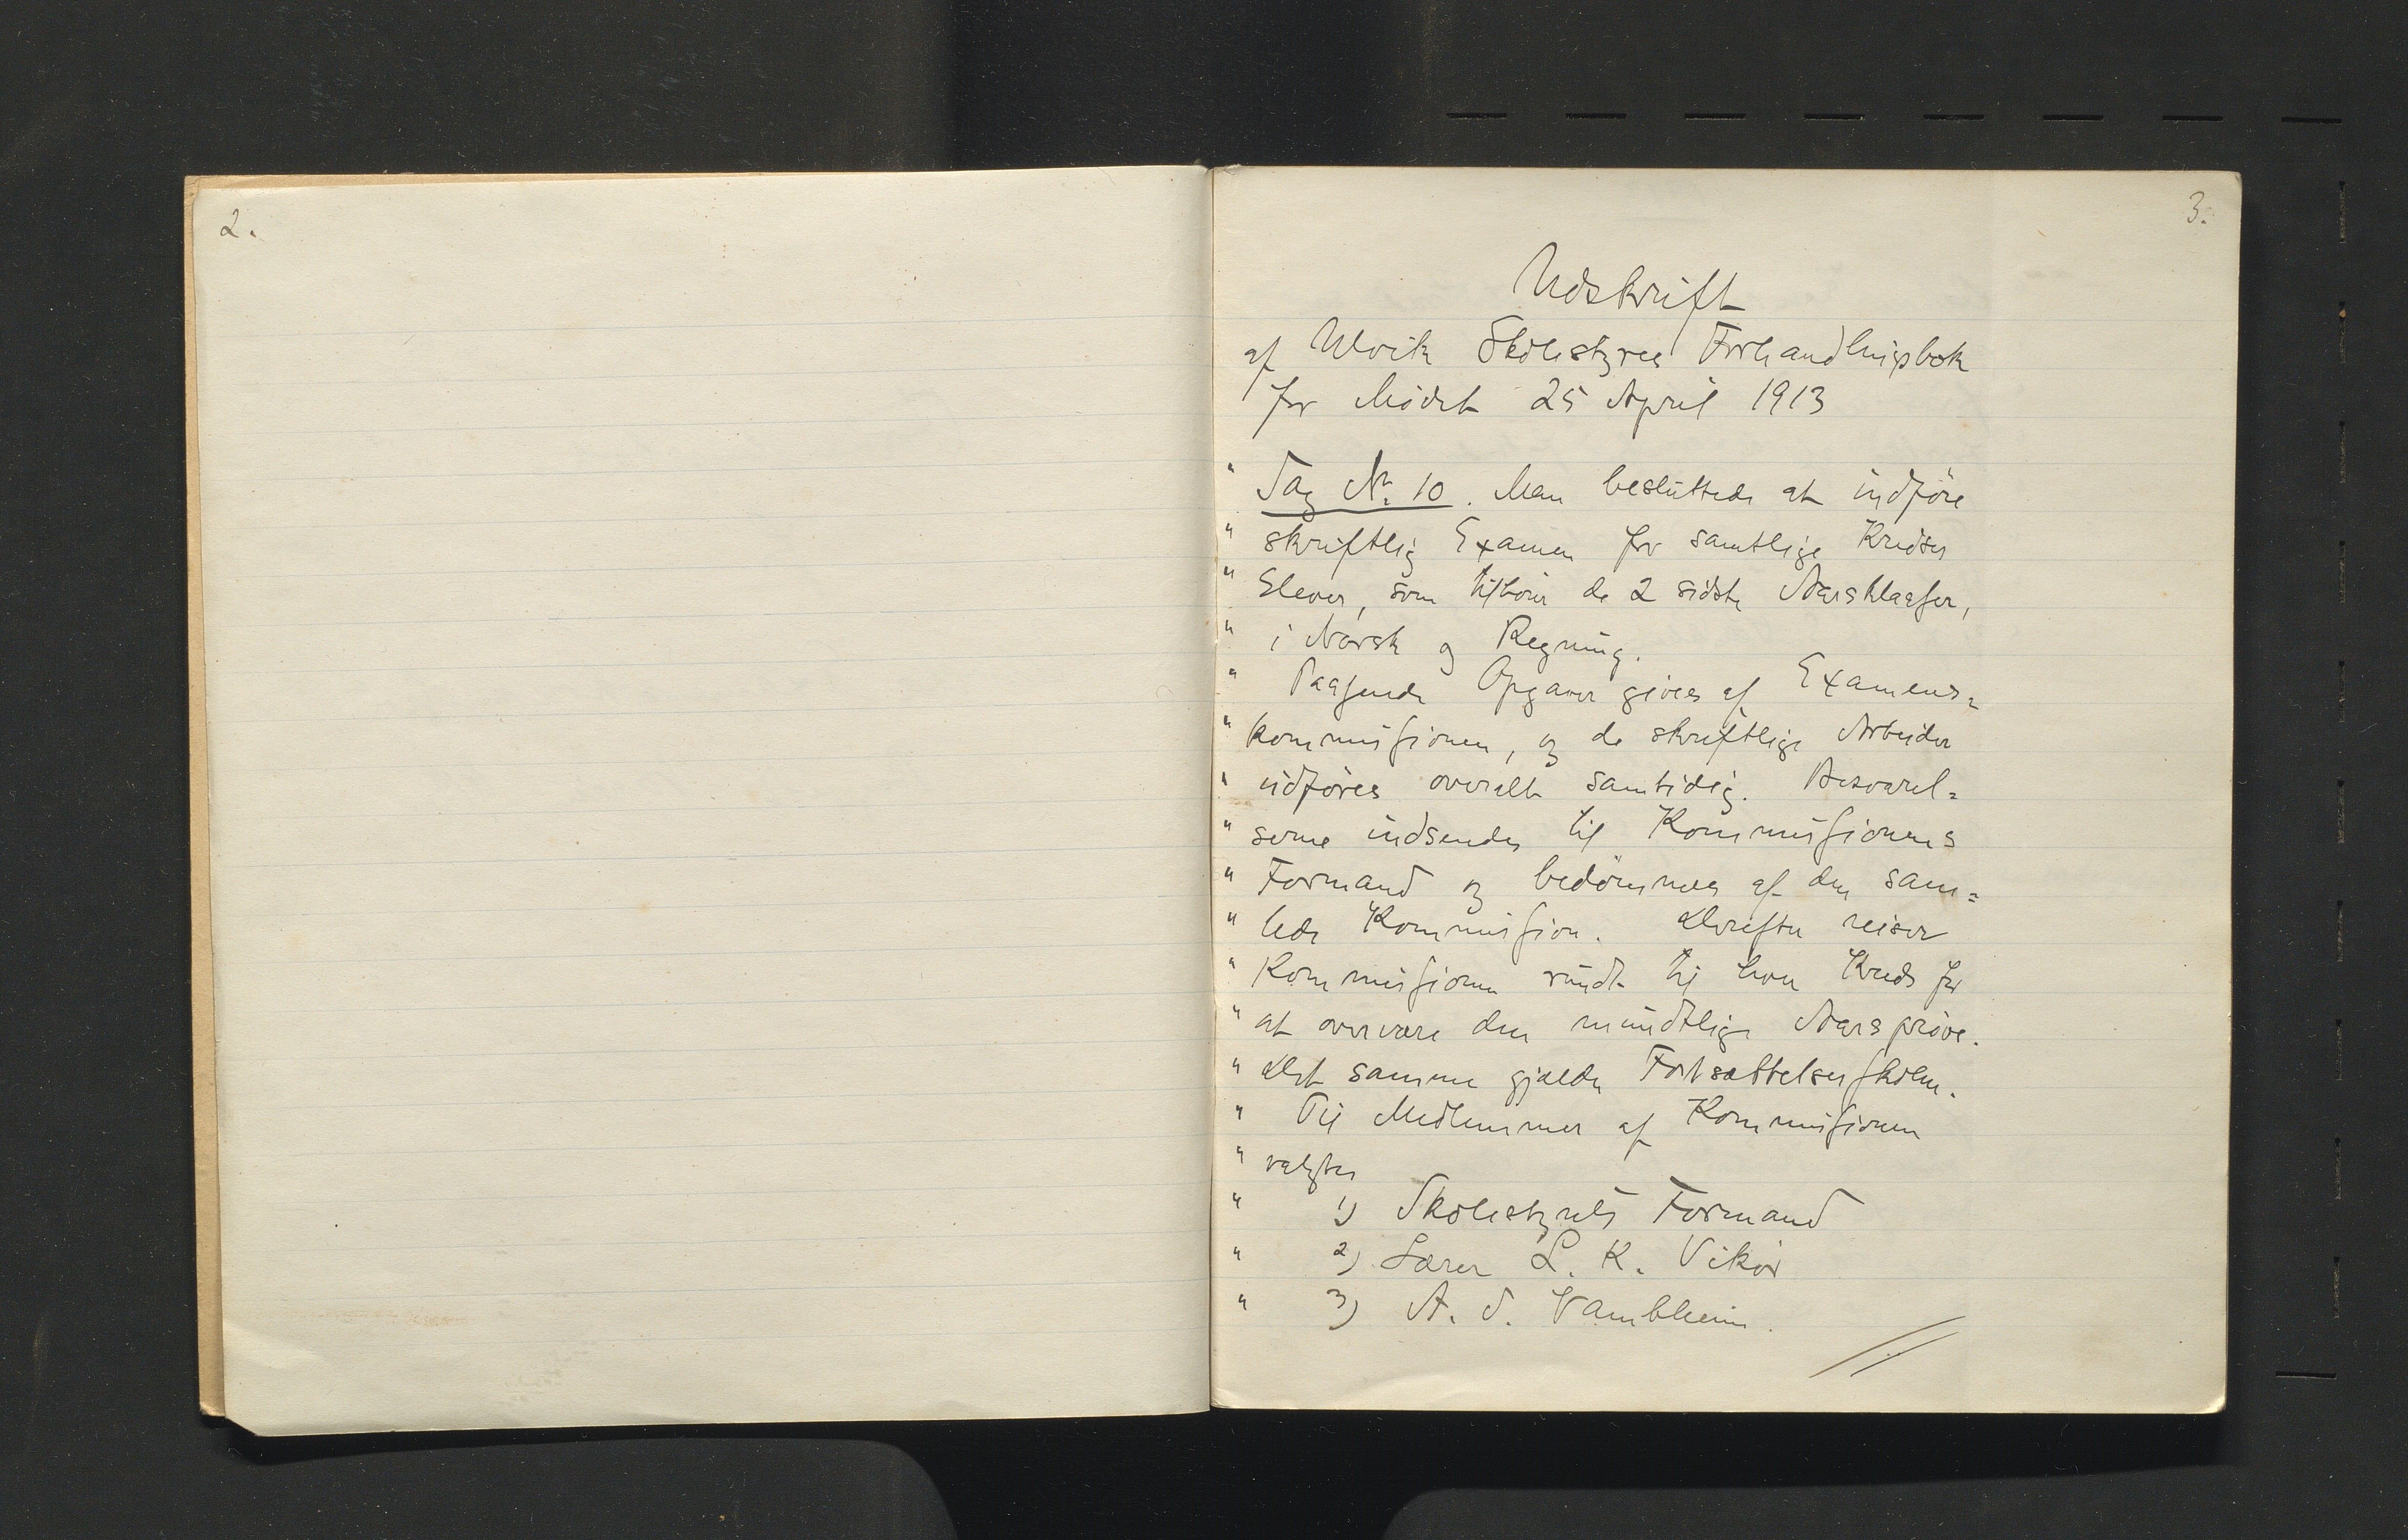 2.
3.
Udskrift
af Ulvik Skolestyres Forhandlingsbok
for Mødet 25 April 1913
" Sag Nr. 10. Man besluttede at indføre
" skriftlig Examen for samtlige Kredses
" Elever, som tilhører de 2 sidste Aarsklasser,
" i Norsk og Regning.
" Passende Opgaver gives af Examens=
" kommissionen, og de skriftlige Arbeider
" udføres overalt samtidig. Besvarel=
" serne indsendes til Kommissionens
" Formand og bedømmes af den sam=
" lede Kommission. Derefter reiser
" Kommissionen rundt til hver Kreds for
" at overvære den mundtlige Aarsprøve.
" Det samme gjælder Fortsættelsesskolen.
" Til Medlemmer af Kommissionen
" valgtes
" 1) Skolestyrets Formand
" 2) Lærer L. K. Vikør
" 3) A. S. Vambheim.